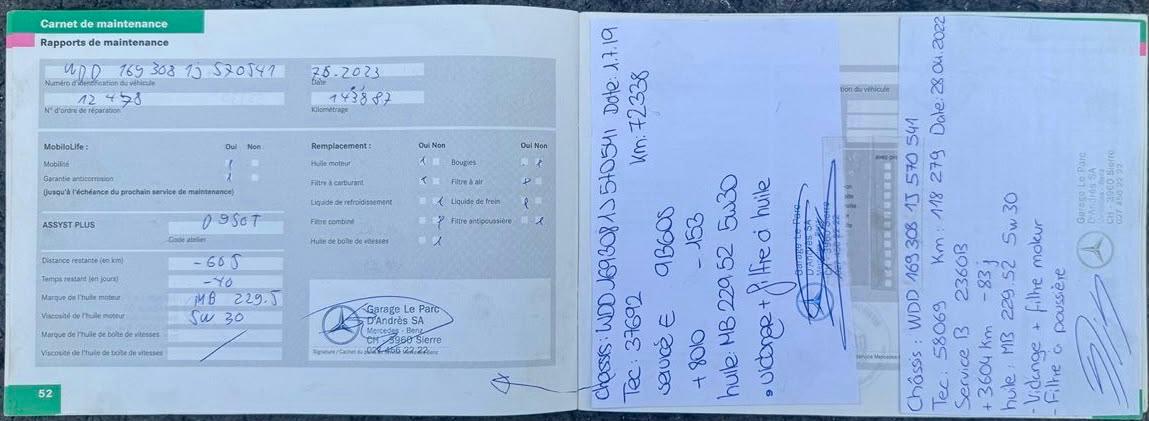 Carnet de maintenance
Rapports de maintenance
WDD 169 308 1J 570541
Numéro d'identification du véhicule
Date
12 478
143887
N° d'ordre de réparation
Kilométrage
MobiloLife :
Oui Non
Mobilité
Garantie anticorrosion
(jusqu'à l'échéance du prochain service de maintenance)
ASSYST PLUS
Code atelier
Distance restante (en km)
-605
Temps restant (en jours)
Marque de l'huile moteur
MB 229.5
Viscosité de l'huile moteur
5W 30
Marque de l'huile de boîte de vitesses
Viscosité de l'huile de boîte de vitesses
Remplacement :
Oui Non
Oui Non
Huile moteur
Bougies
Filtre à carburant
Filtre à air
Liquide de refroidissement
Liquide de frein
Filtre combiné
Filtre antipoussière
Huile de boîte de vitesses
Garage Le Parc
D'Andrès SA
Mercedes-Benz
CH - 3960 Sierre
52
châssis: WDD 1693081J570541 Date: 1.7.19
Tec: 37692 Km: 72338
service E
+ 800 - 153
huile: MB 229.52 5w30
vidange + filtre à huile
Garage Le Parc
D'Andrès SA
tion du véhicule
Châssis : WDD 169 308 1J 570 541
Tec: 58069 Km: 118 279 Date: 28.04.2022
Service B 2360B
+ 3604 Km - 83 j
huile : MB 229.52 5w 30
- Vidange + filtre moteur
- Filtre à poussière
Garage Le Parc
D'Andrès SA
CH - 3960 Sierre